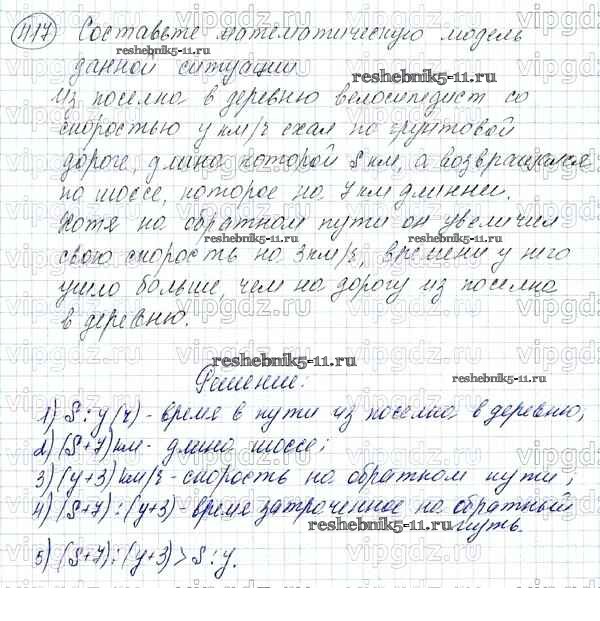 417 Составьте математическую модель
reshebnik5-11.ru
данной ситуации
reshebnik5-11.ru
Из поселка в деревню велосипедист со
скоростью у км/ч ехал по грунтовой
дороге, длина которой S км, а возвращался
по шоссе, которое на 7 км длиннеи.
Хотя на обратном пути он увеличил
reshebnik5-11.ru
свою скорость на 3км/ч, времени у него
ушло больше, чем на дорогу из поселка
в деревню.
reshebnik5-11.ru
Решение:
reshebnik5-11.ru
1) S : у (ч) - время в пути из поселка в деревню;
2) (S+7) км - длина шоссе;
3) (у+3) км/ч - скорость на обратном пути;
4) (S+7) : (у+3) - время затраченное на обратный
путь.
reshebnik5-11.ru
5) (S+7) : (у+3) > S : у.
vipgdz.ru